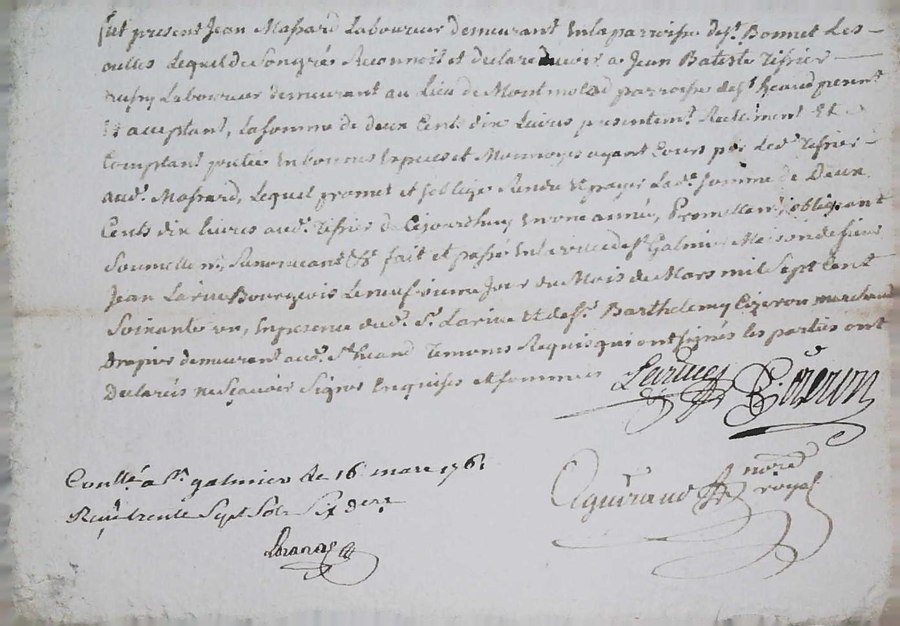 fut present Jean Massard Laboureur demeurant en la parroisse de st. Bonnet Les
oulles Lequel de son gré a Reconnoit et declare devoir a Jean Batiste Tissier
Laboureur demeurant au Lieu de parroisse de st heand present
et acceptant, La somme de deux Cents dix Livres presentemt. Reellement Et
Comptant en bonnes Especes et Monnoyes ayant Cours par Led. Tissier
aud. Massard, Lequel promet et soblige Rendre et payer Lad. somme de Deux
Cents dix livres aud. Tissier de Cejourdhuy en une année, Promettent, obligeant
Soumettent, Renonceant &c. fait et passé en ville de st. Galmier Maison de sieur
Jean Larive Bourgeois Le neufvieme Jour du Mois de Mars mil Sept Cent
Soixante un, En presence dud. Sr. Larive Et de sr. Barthelemy Cizeron marchand
Drapier demeurant aud. st. heand Temoins Requis qui ont signés les parties ont
Declarés ne sçavoir Signer Enquises et sommées Larive Cizeron
Conllé. a st. galmier le 16 mars 1761
Reçu trente Sept Sols Six ders
nore. royal